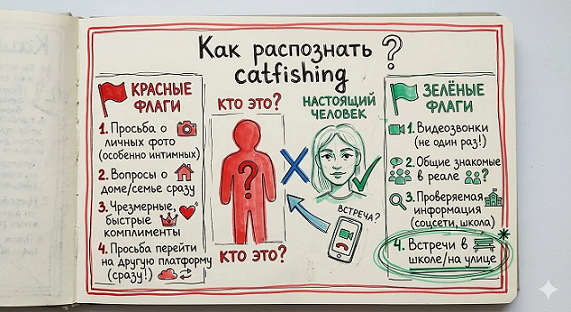 Как распознать ?
catfishing
КРАСНЫЕ
ФЛАГИ
1. Просьба о
личных фото
(особенно интимных)
2. Вопросы о
доме/семье сразу
3. Чрезмерные,
быстрые
комплименты
4. Просьба перейти
на другую платформу
(сразу!)
КТО ЭТО?
?
КТО ЭТО?
НАСТОЯЩИЙ
ЧЕЛОВЕК
ВСТРЕЧА?
ЗЕЛЁНЫЕ
ФЛАГИ
1. Видеозвонки
(не один раз!)
2. Общие знакомые
в реале ?
3. Проверяемая
информация
(соцсети, школа)
4. Встречи в
школе/на улице